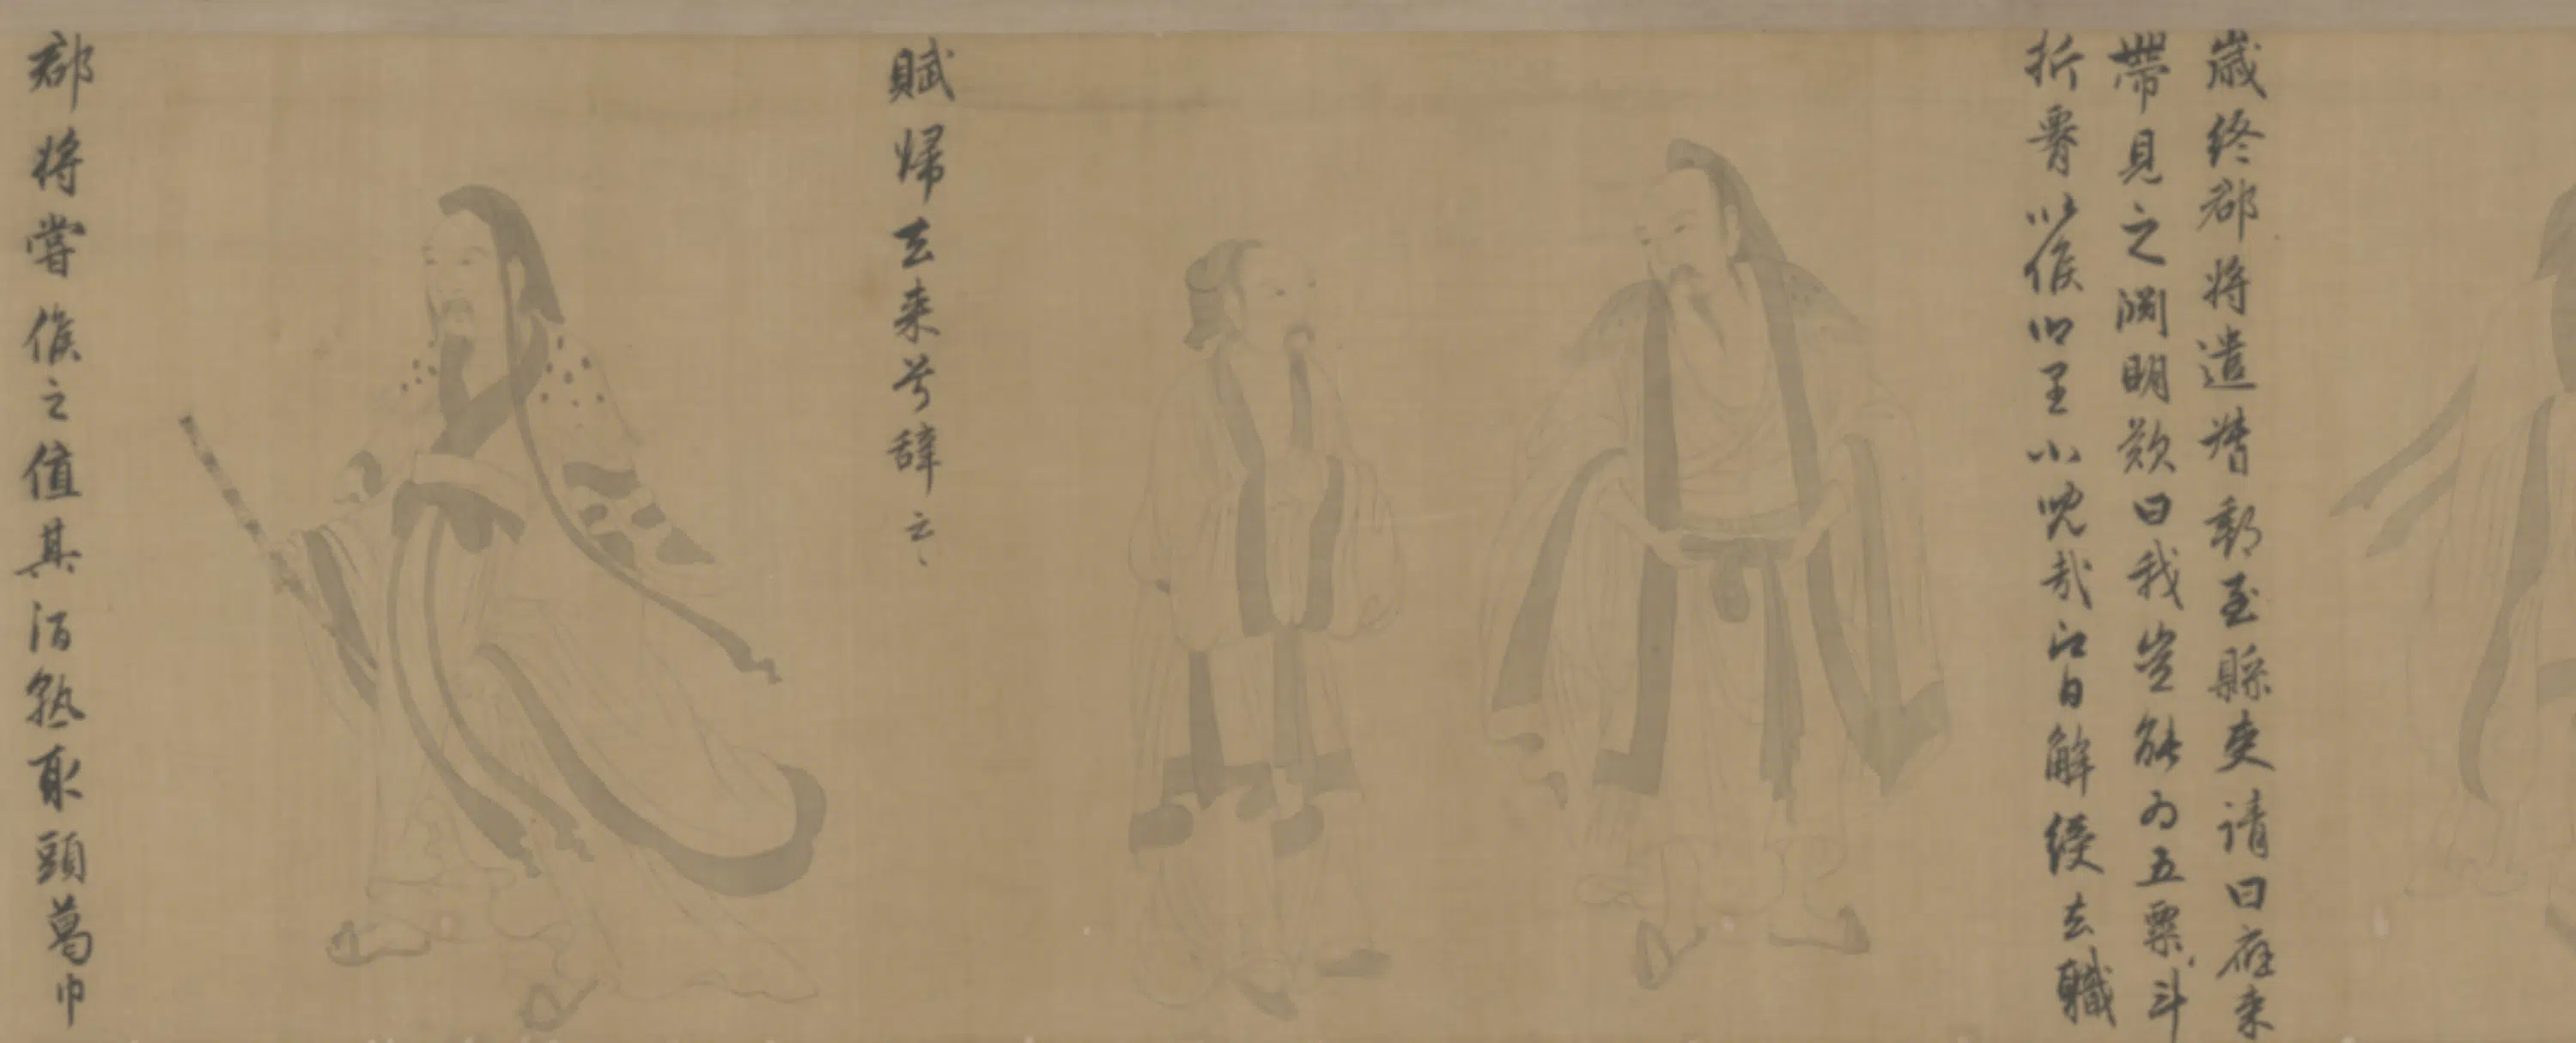 歲終郡將遣督郵至縣吏請曰應束
帶見之淵明歎曰我豈能為五粟斗
折腰以候鄉里小兒哉即日解綬去職
賦歸去来兮辭云〻
郡將嘗候之值其酒熟取頭葛巾